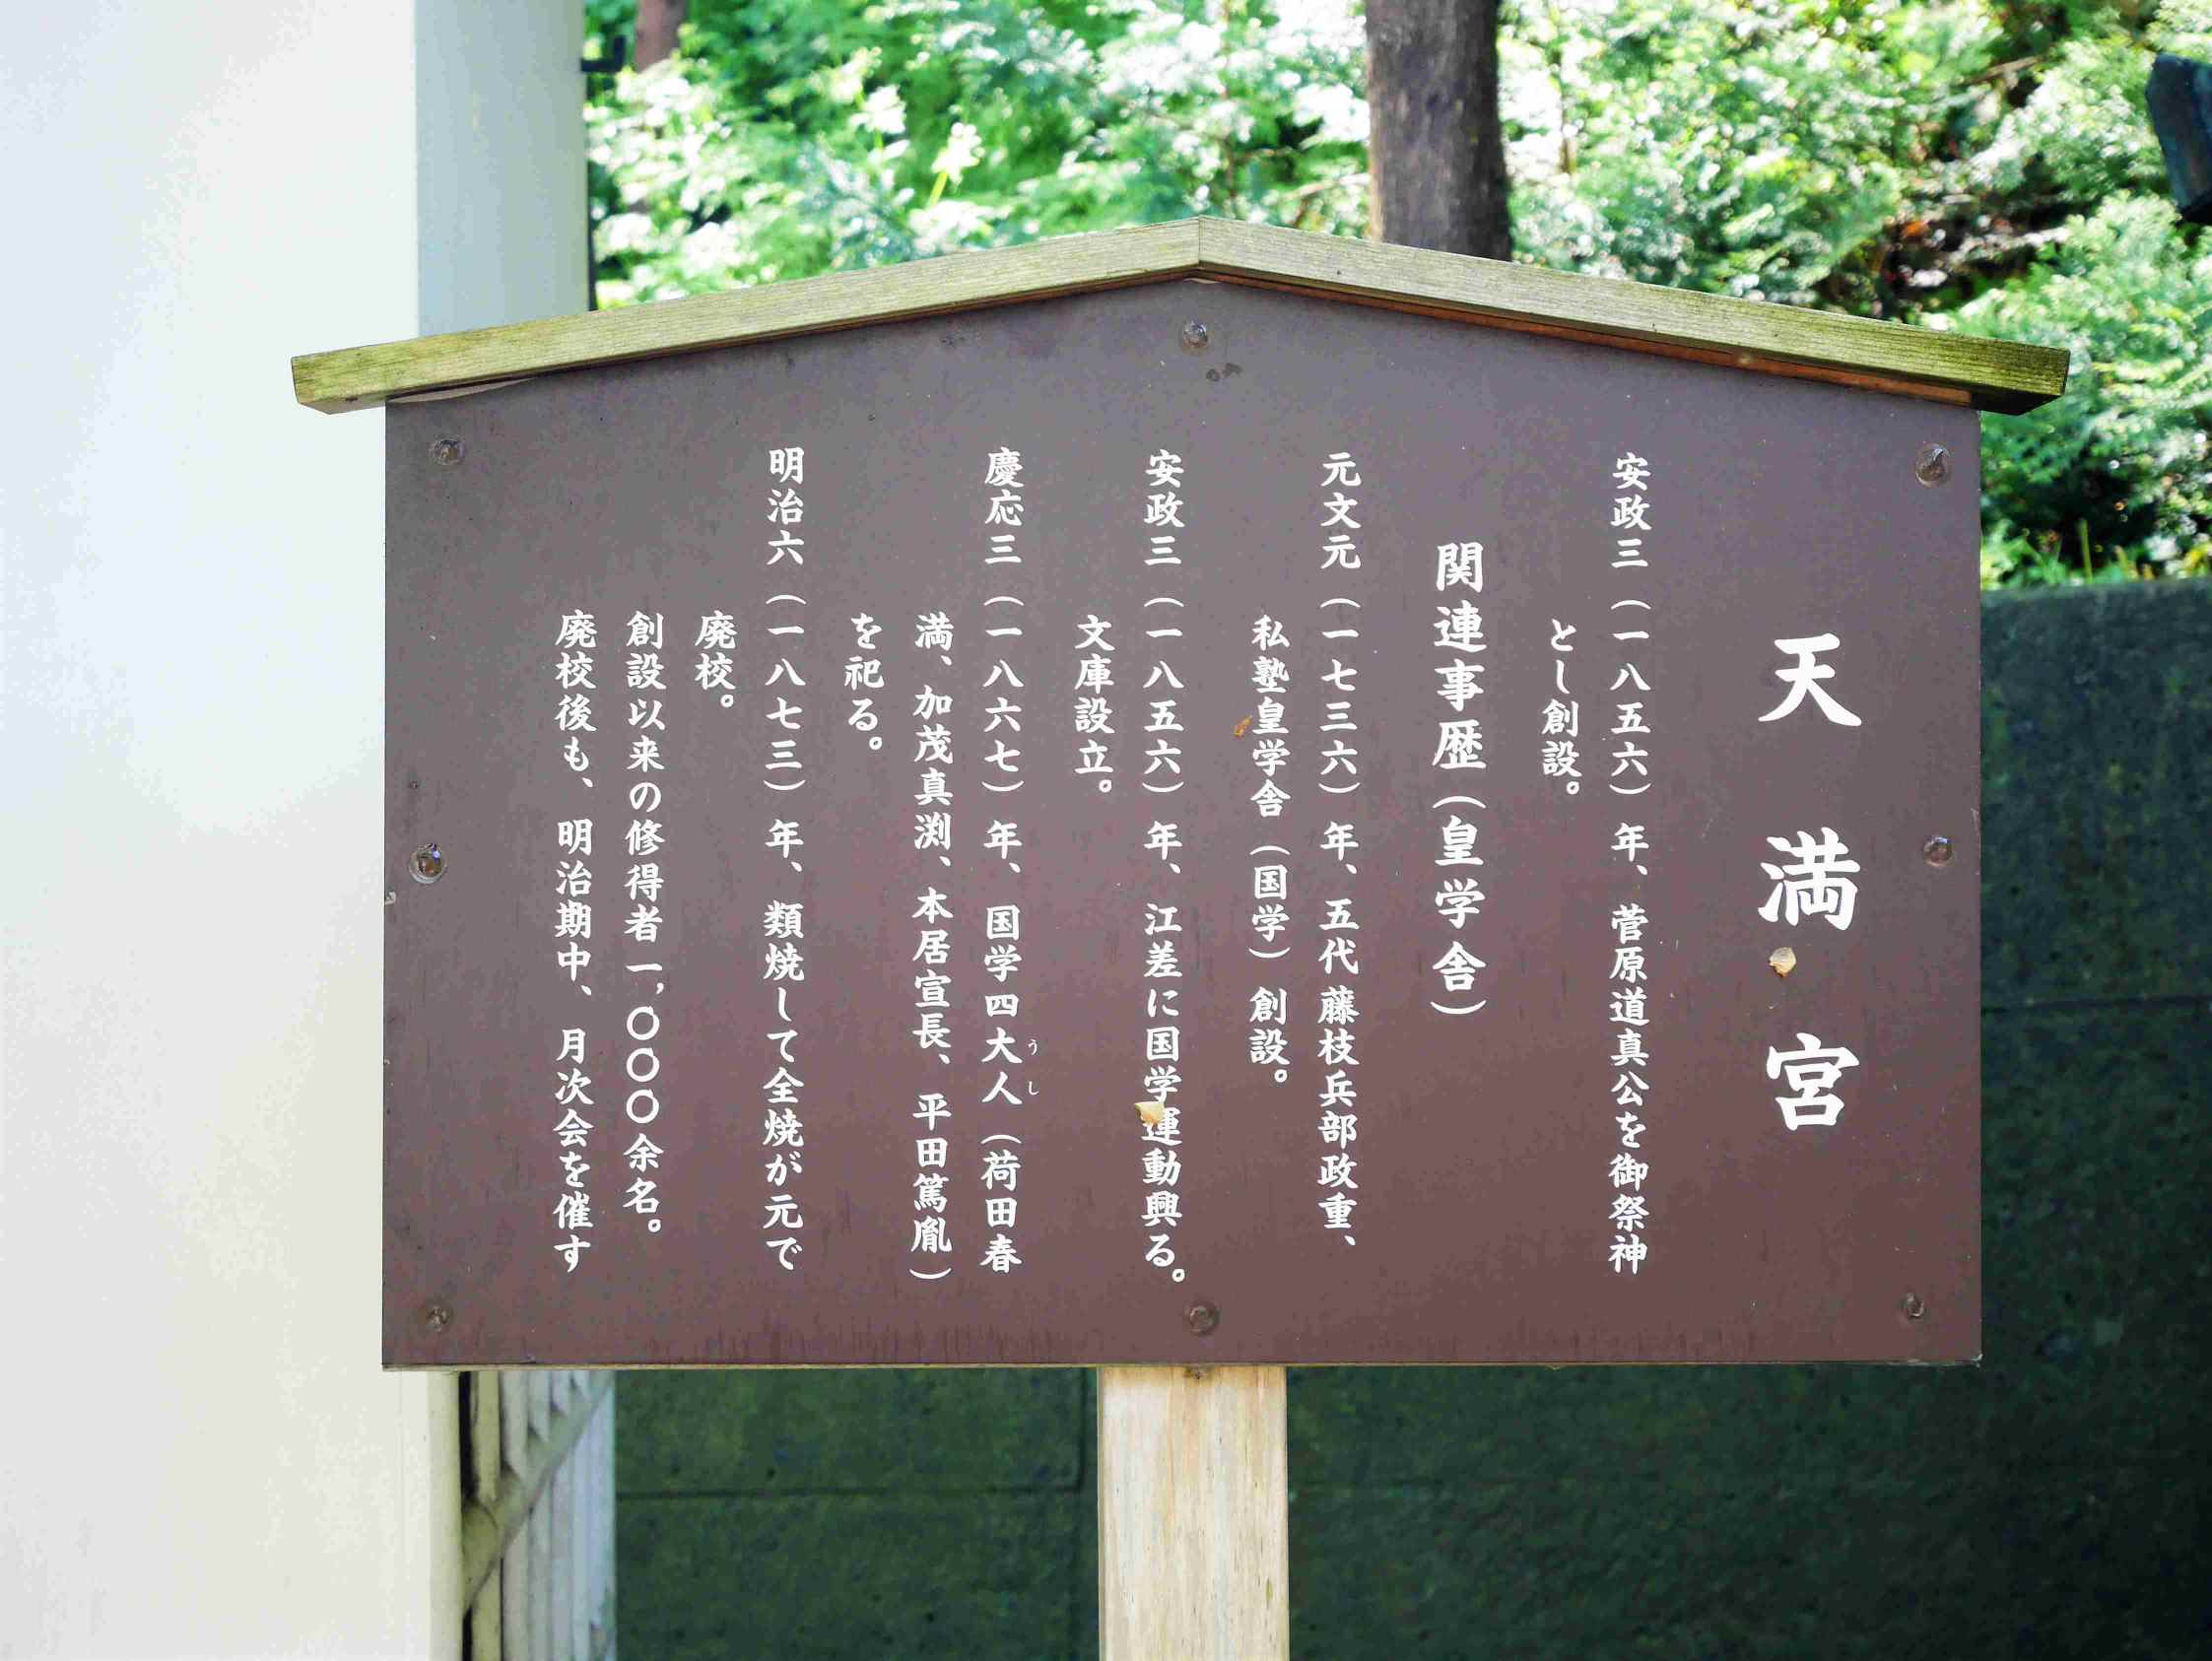 天満宮
安政三（一八五六）年、菅原道真公を御祭神
とし創設。
関連事歴（皇学舎）
元文元（一七三六）年、五代藤枝兵部政重、
私塾皇学舎（国学）創設。
安政三（一八五六）年、江差に国学運動興る。
文庫設立。
慶応三（一八六七）年、国学四大人（荷田春
うし
満、加茂真渕、本居宣長、平田篤胤）
を祀る。
明治六（一八七三）年、類焼して全焼が元で
廃校。
創設以来の修得者一,〇〇〇余名。
廃校後も、明治期中、月次会を催す